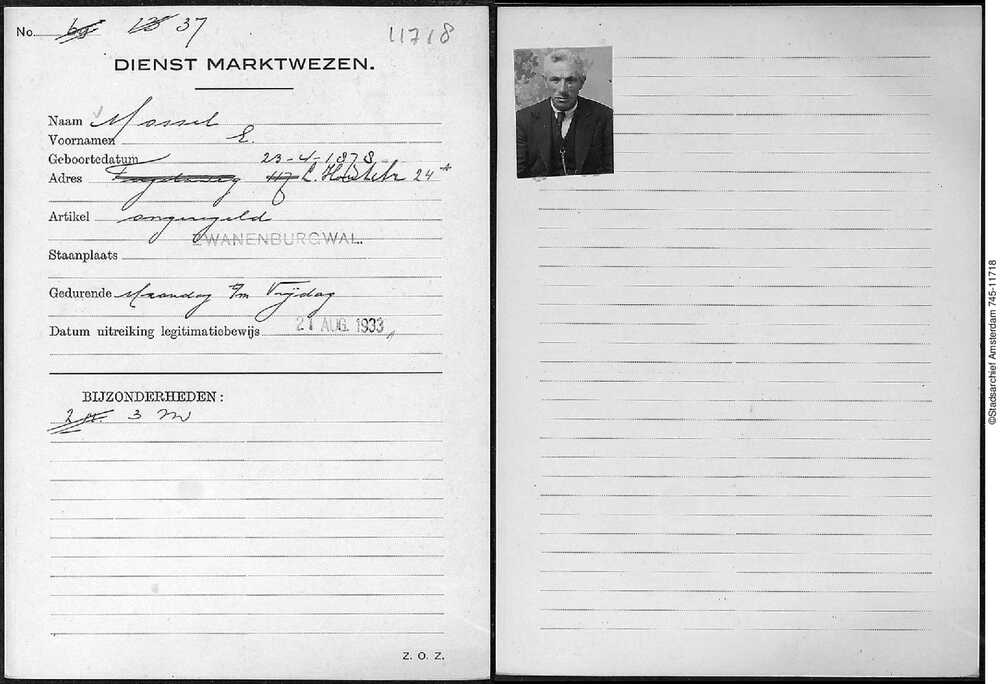 No. 69 128 37
11718
DIENST MARKTWEZEN.
Naam Mossel
Voornamen E.
Geboortedatum 23-4-1878
Adres 117 L. Houtstr 24
Artikel ongeregeld
ZWANENBURGWAL.
Staanplaats
Gedurende Maandag t/m Vrijdag
Datum uitreiking legitimatiebewijs 21 AUG. 1933
BIJZONDERHEDEN:
3 M
Z. O. Z.
©Stadsarchief Amsterdam 745-11718